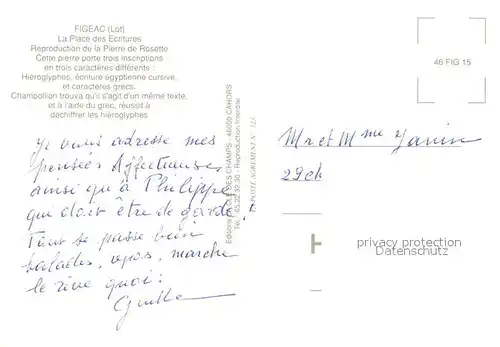 FIGEAC (Lot)
La Place des Ecritures
Reproduction de la Pierre de Rosette
Cette pierre porte trois inscriptions
en trois caractères différents :
Hiéroglyphes, écriture égyptienne cursive,
et caractères grecs.
Champollion trouva qu'il s'agit d'un même texte,
et à l'aide du grec, réussit à
déchiffrer les hiéroglyphes
Je vous adresse mes
pensées affectueuses
ainsi qu'à Philippe
qui doit être de garde !
Tout se passe bien
balades, repos, marche
le rêve quoi :
Editions DES CHAMPS - 46000 CAHORS
Tél. - Reproduction Interdite
46 FIG 15
Mr et Mme Janin
29ch
privacy protection
Datenschutz